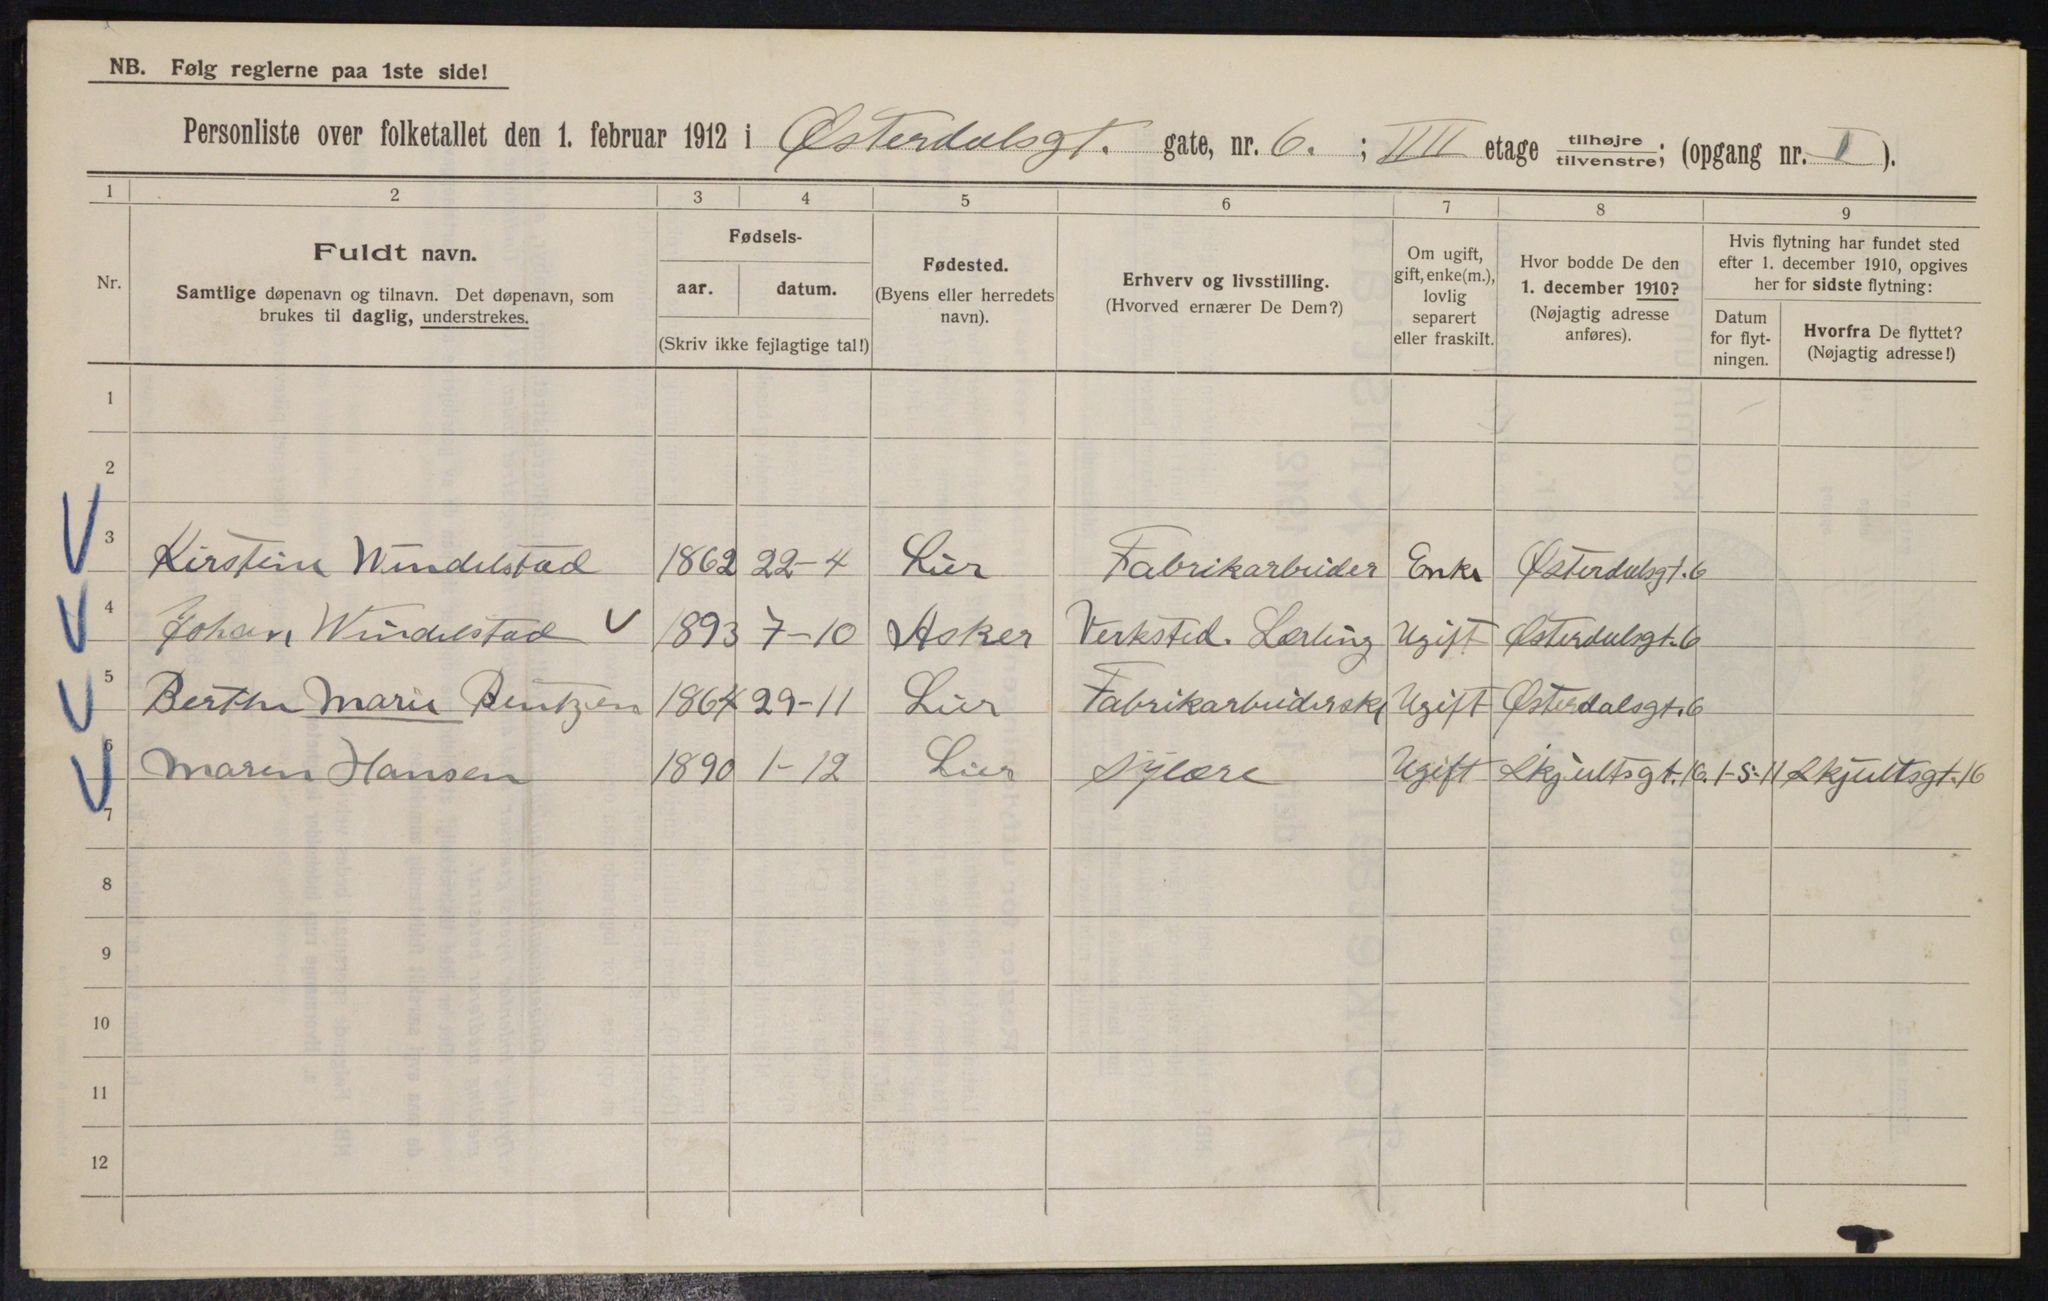 NB. Følg reglerne paa 1ste side!
Personliste over folketallet den 1. februar 1912 i Østerdalsgt. gate, nr. 6. ; III etage tilhøjre/tilvenstre; (opgang nr. I ).
1 2 3 4 5 6 7 8 9
Nr.
Fuldt navn.
Samtlige døpenavn og tilnavn. Det døpenavn, som
brukes til daglig, understrekes.
Fødsels-
aar. datum.
(Skriv ikke fejlagtige tal!)
Fødested.
(Byens eller herredets
navn).
Erhverv og livsstilling.
(Hvorved ernærer De Dem?)
Om ugift,
gift, enke(m.),
lovlig
separert
eller fraskilt.
Hvor bodde De den
1. december 1910?
(Nøjagtig adresse
anføres).
Hvis flytning har fundet sted
efter 1. december 1910, opgives
her for sidste flytning:
Datum
for flyt-
ningen.
Hvorfra De flyttet?
(Nøjagtig adresse!)
1
2
3 Kirstine Windelstad 1862 22-4 Lier Fabrikarbeider Enke Østerdalsgt. 6
4 Johan Windelstad 1893 7-10 Asker Verksted. Lærling Ugift Østerdalsgt. 6
5 Berthe Marie Bentzen 1864 29-11 Lier Fabrikarbeiderske Ugift Østerdalsgt. 6
6 Maren Hansen 1890 1-12 Lier Sylære Ugift Skjultsgt. 16. 1-5-11 Skjultsgt. 16
7
8
9
10
11
12